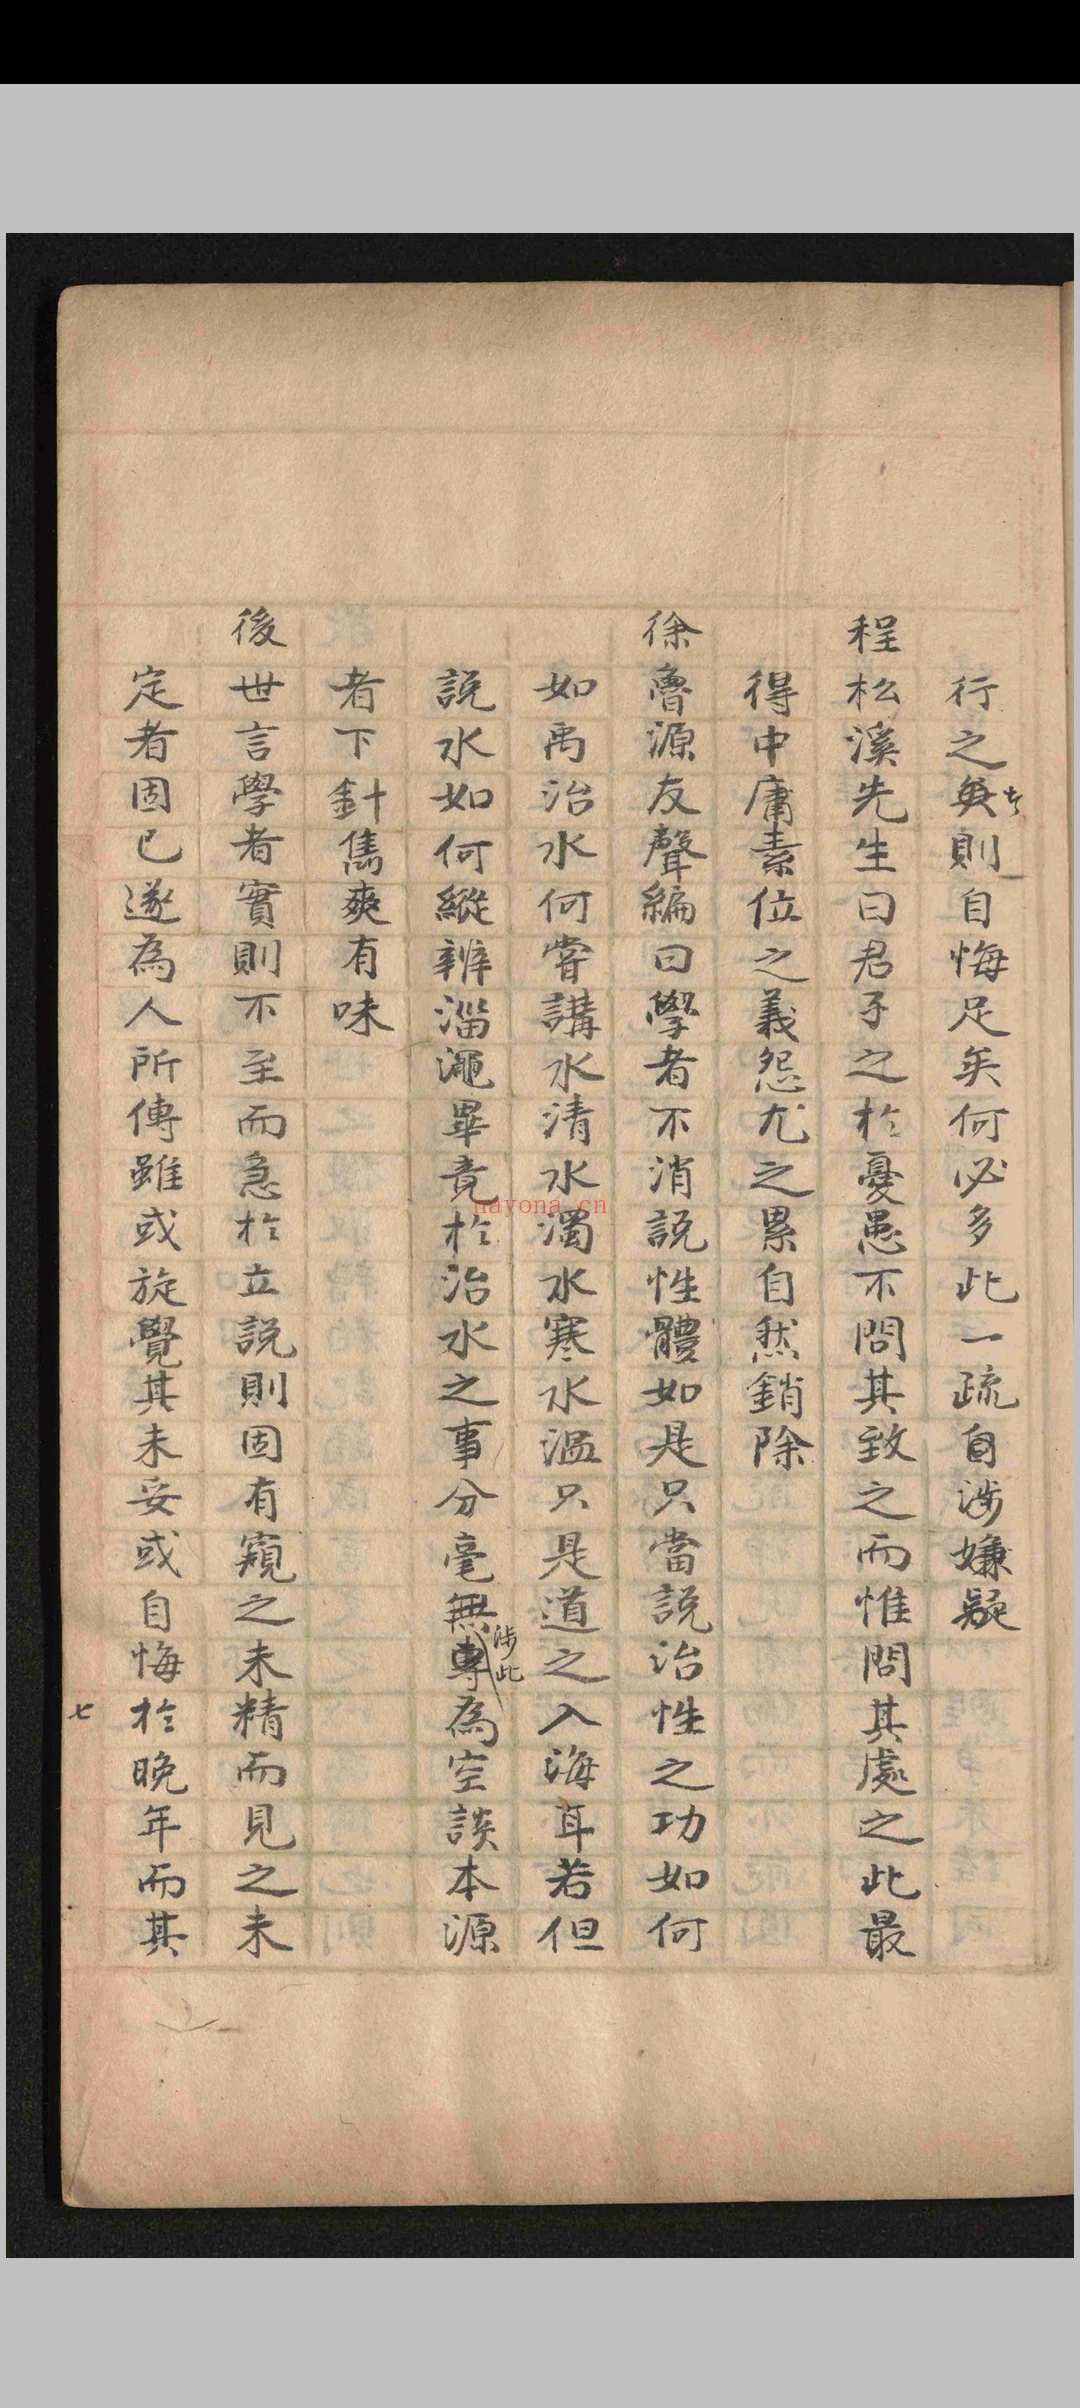 行之矣則自悔足矣何必多此一疏自涉嫌疑
程松溪先生曰君子之於憂患不問其致之而惟問其處之此最
得中庸素位之義怨尤之累自然銷除
徐魯源友聲編曰學者不消説性體如是只當説治性之功如何
如禹治水何嘗講水清水濁水寒水溫只是道之入海耳若但
説水如何縱辨淄澠畢竟於治水之事分毫無專為空談本源
涉此
者下針雋爽有味
後世言學者實則不至而急於立説則固有窺之未精而見之未
定者固已遂為人所傳雖或旋覺其未妥或自悔於晚年而其
七
nayona.cn